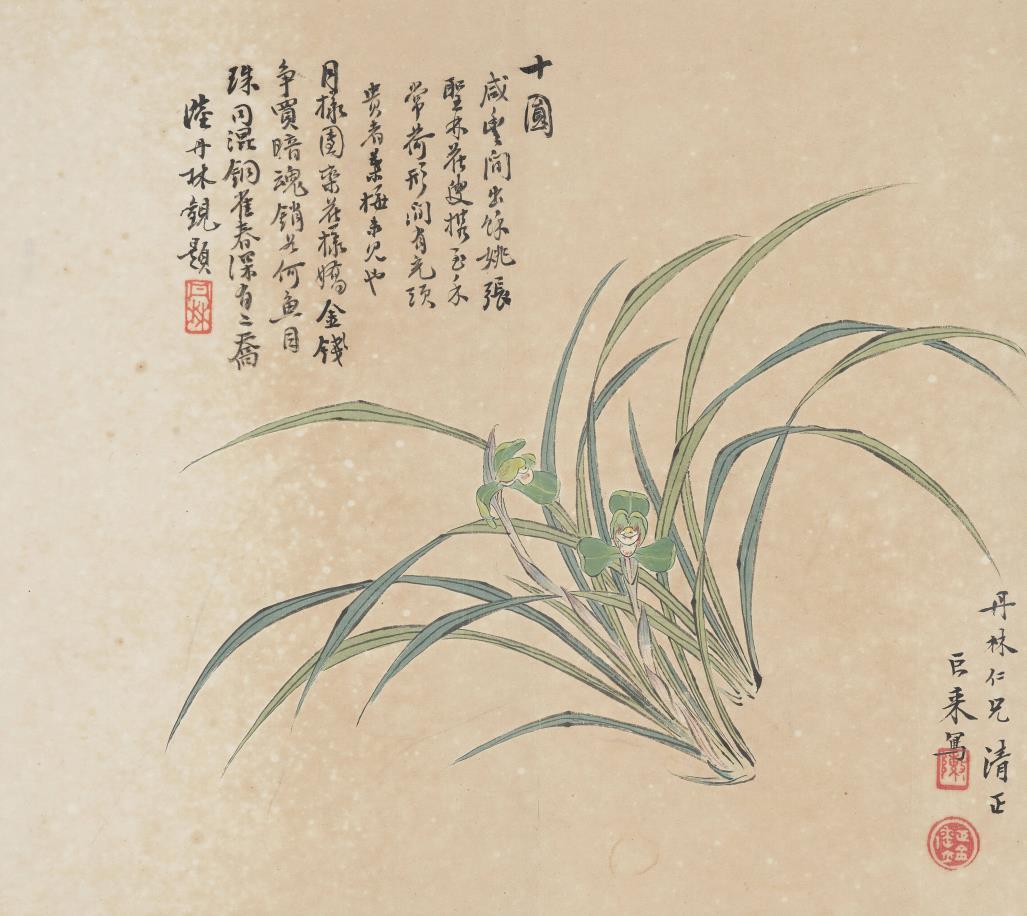 十圓
咸豐間出餘姚張
聖林花叟携至禾
常荷形間有元頭
貴者葉梅未见也
月樣團欒花樣嬌金錢
争買暗魂銷如何魚目
珠同混銅雀春深有二喬
陸丹林觀題
丹林仁兄清正
巨來寫